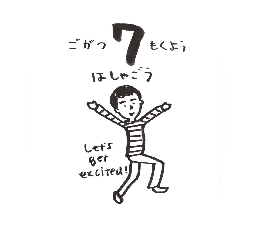 ごがつ 7 もくよう
はしゃごう
Let's
get
excited!